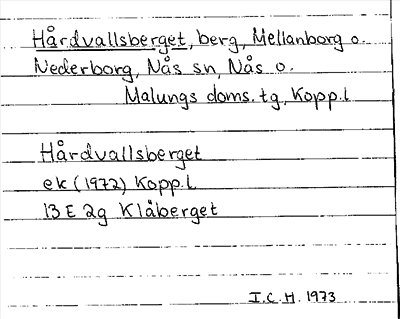 Hårdvallsberget, berg, Mellanborg o.
Nederborg, Nås sn, Nås o.
Malungs doms. tg, Kopp. l
Hårdvallsberget
ek (1972) Kopp. l
13 E 2g Klåberget
I.C.H. 1973